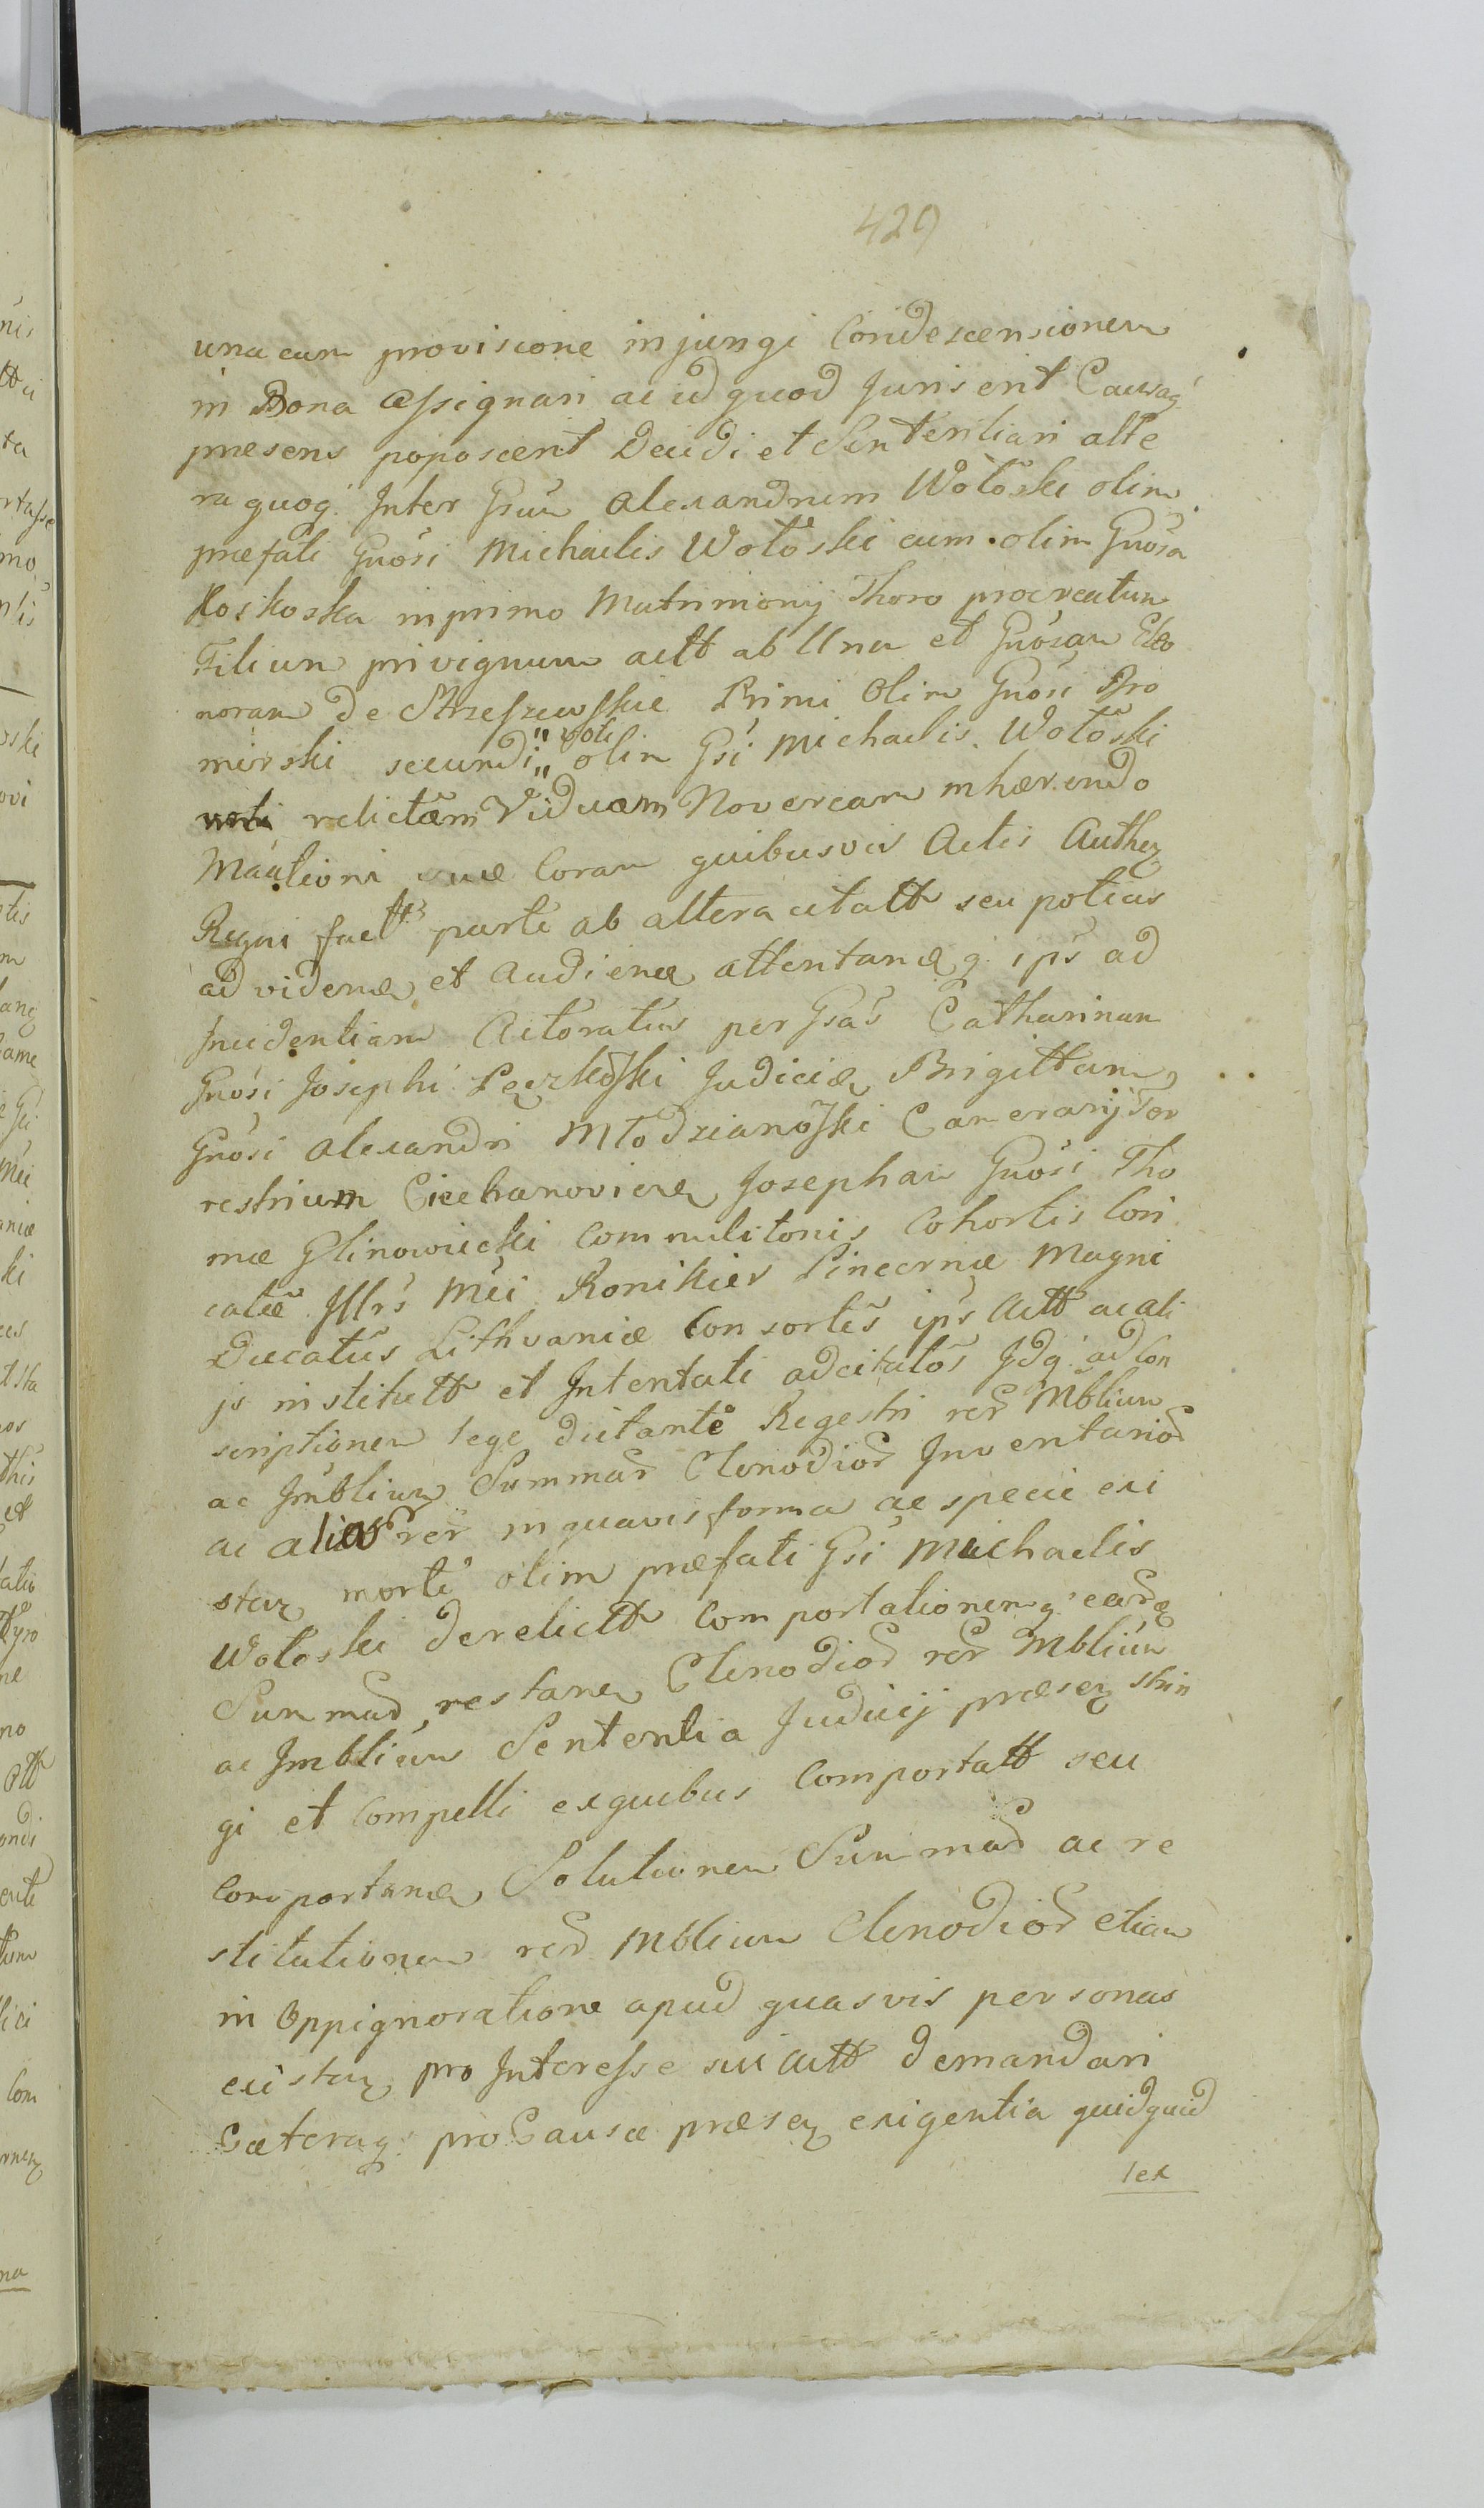 429
una cum proviscione injungi Condescensionem
in Bona assignari ac id quod Juris erit Causaq́
praesens poposcerit Decidi et Sententiari alte
ra quoq́ Inter Gsum Alexandrum Wołoski olim
praefati Gnosi Michaelis Wołoski cum olim Gnosa
Koskoska in primo Matrimonij Thoro procreatum
Filium privignum actt ab Una et Gnosam Eleo
noram De Strzeszewskie Primi Olim Gnosi Bro
mirski secundi " voti " olim Gsi Michaelis Wołoski
relictam Viduam Novercam inhaerendo
suae Coram quibusvis Actis Authez
Regni fact parte ab altera citatt seu potius
ad videnɖ et Audienɖ attentanɖq́ ips ad
Incidentiam Actoratus per Gsas Catharinam
Gnosi Josephi Pęczkoski Judicis Brigittam
Gnosi Alexandri Młodzianoski Camerarij Ter
restrium Ciechanoviens Josepham Gnosi Tho
mae Glinowiecki Commilitonis Cohortis Lori
catae Illris Mci Ronikier Pincernae Magni
Ducatus Lithvaniae Consortes ips Actt ac ali
js institutt et Intentati adcitatos Idq́ ad Con
scriptionem lege dictante Regestri rer Mblium
ac Imblium Summar Clenodior Inventarior
ac alior rer in quavis forma ac specie exi
steņ morte olim praefati Gsi Michaelis
Wołoski derelictt Comportationemq́ earɖ
Summar restanɖ Clenodior rer Mblium
ac Imblium Sententia Judicij praesez strin
gi et Compelli ex quibus Comportatt seu
Comportanɖ Solutionem Summar ac re
stitutionem rer Mblium Clenodior etiam
in Oppignoratione apud quasvis personas
existez pro Interesse sui Actt demandari
Caeteraq́ pro Causae praesez exigentia quidquid
lex